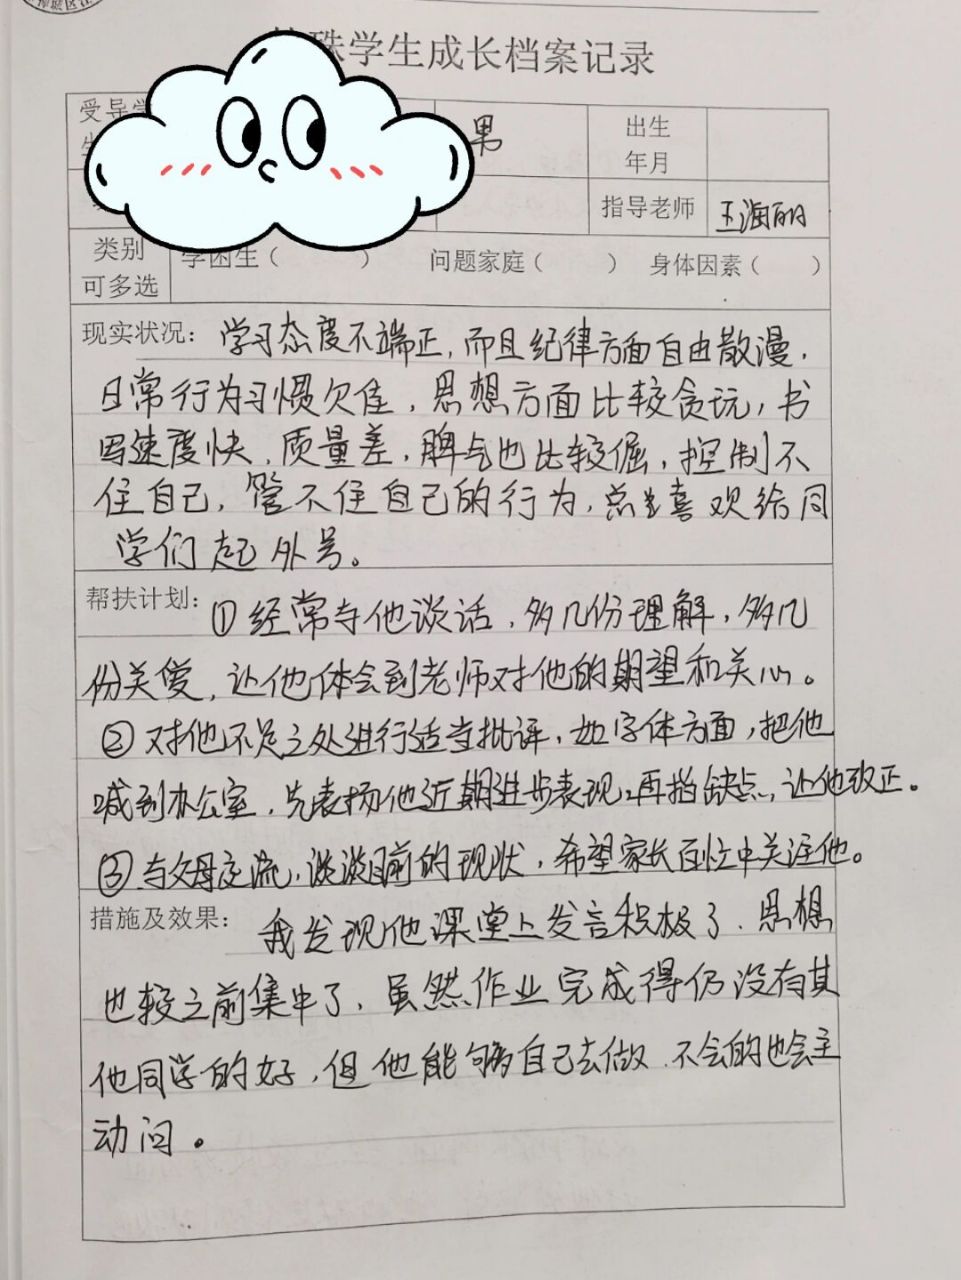 殊学生成长档案记录
受导学
男
出生
年月
指导老师
王海丽
类别
可多选
学困生（ ） 问题家庭（ ） 身体因素（ ）
现实状况：学习态度不端正，而且纪律方面自由散漫，
日常行为习惯欠佳，思想方面比较贪玩，书
写速度快，质量差，脾气也比较倔，控制不
住自己，管不住自己的行为，总是喜欢给同
学们起外号。
帮扶计划：①经常寻他谈话，多几份理解，多几
份关爱，让他体会到老师对他的期望和关心。
②对他不足之处进行适当批评，如字体方面，把他
喊到办公室，先表扬他近期进步表现，再指缺点，让他改正。
③与父母交流，谈谈目前的现状，希望家长百忙中关注他。
措施及效果：我发现他课堂上发言积极了，思想
也较之前集中了，虽然作业完成得仍没有其
他同学的好，但他能够自己去做，不会的也会主
动问。